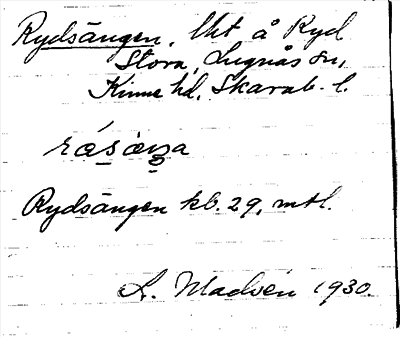 Rydsängen. Uht å Ryd
Stora, Lugnås sn,
Kinne hd, Skarab. l.
Rydsängen kb. 29, mtl.
L. Madsén 1930.